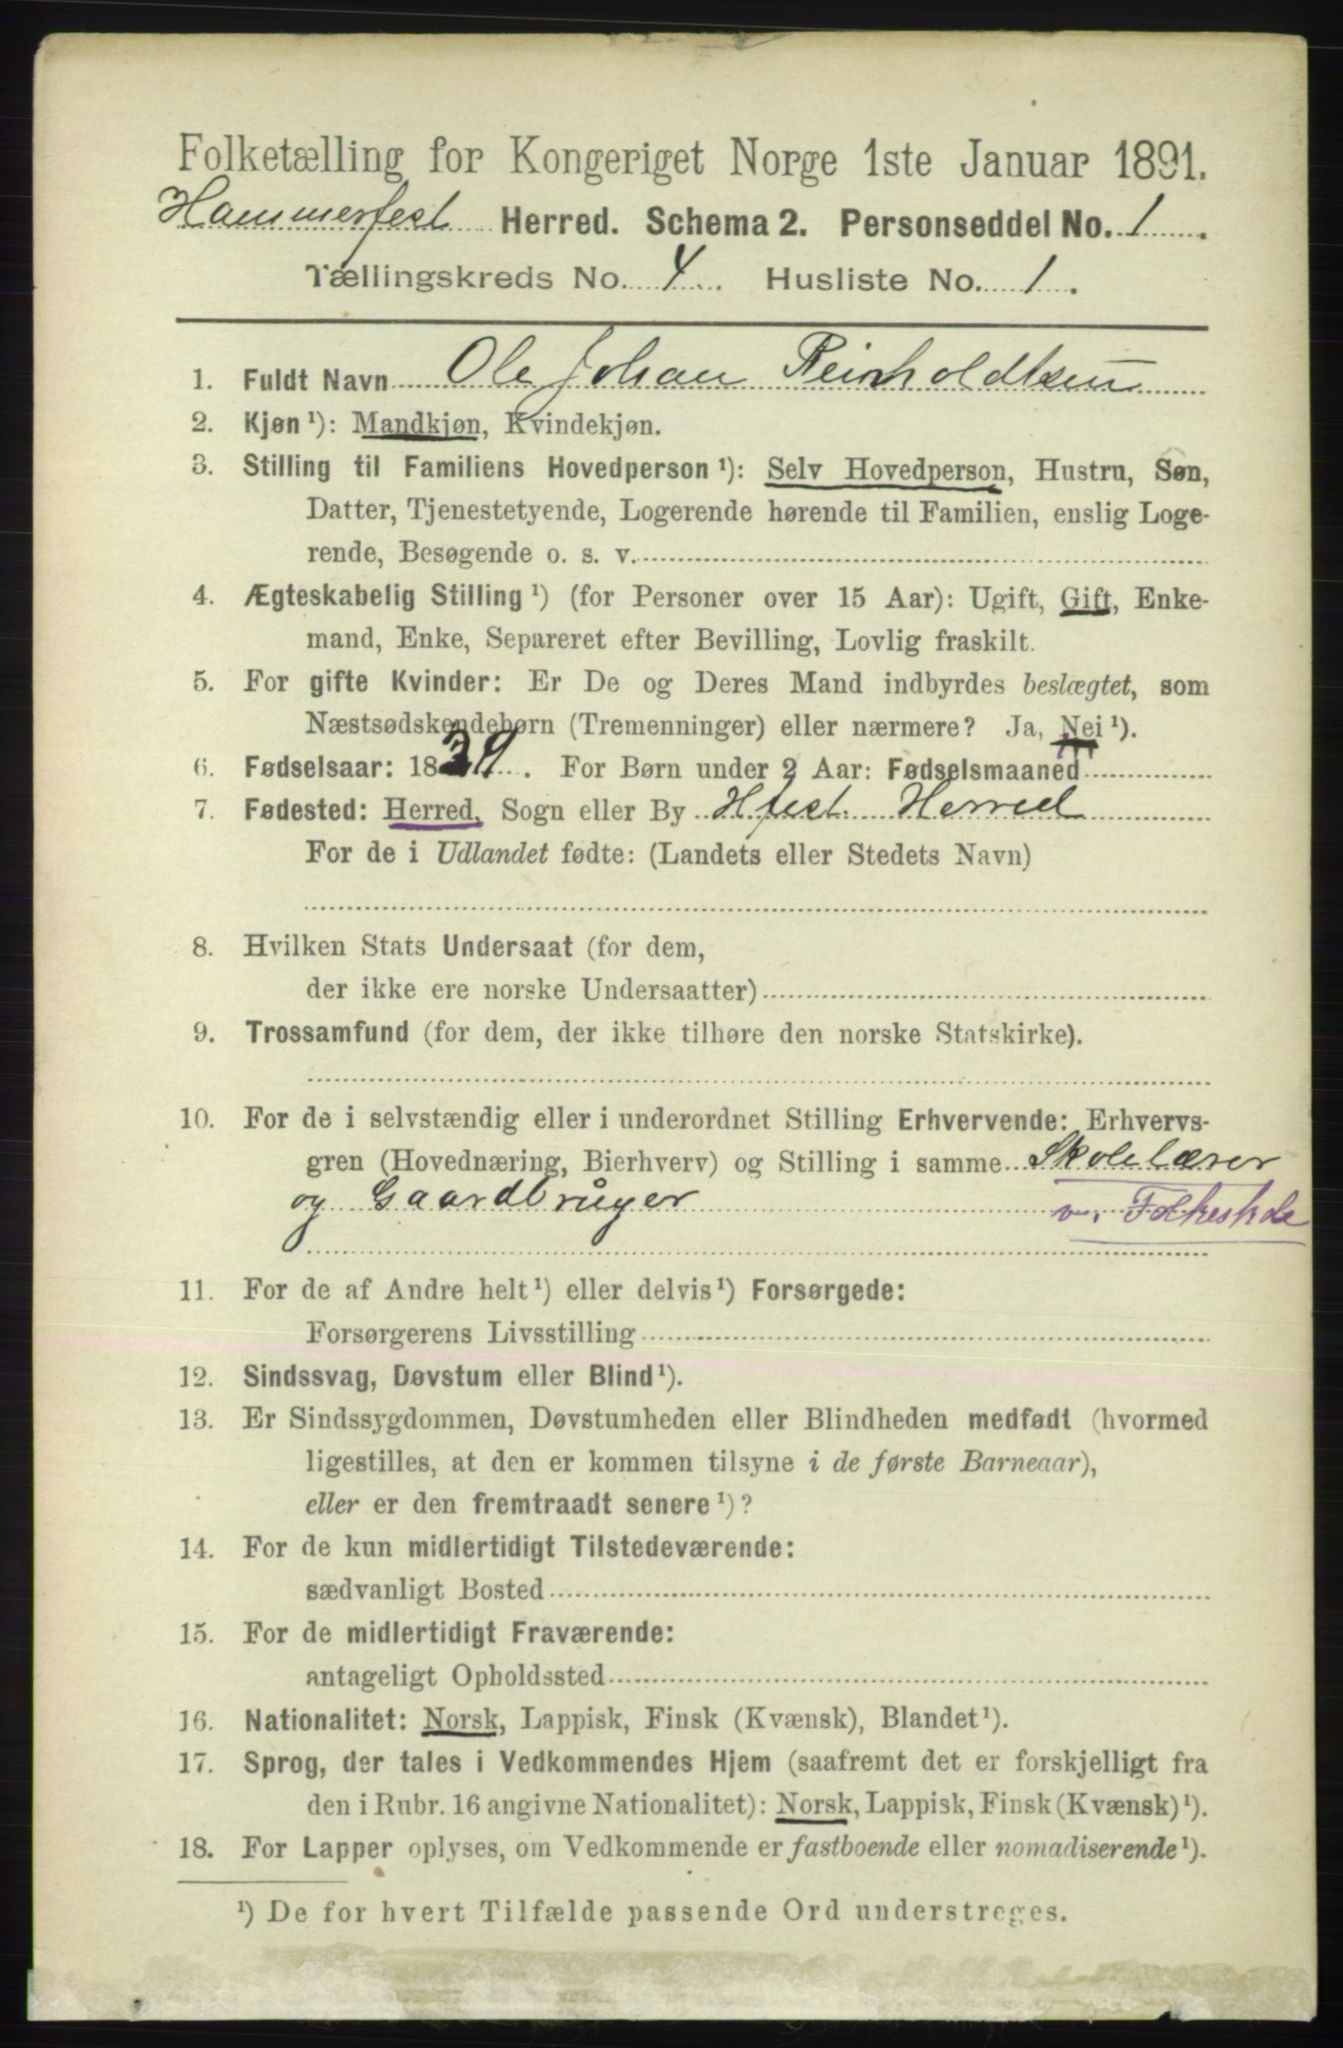 Folketælling for Kongeriget Norge 1ste Januar 1891.
Hammerfest Herred. Schema 2. Personseddel No. 1.
Tællingskreds No. 4. Husliste No. 1.
1. Fuldt Navn Ole Johan Reinholdtsen
2. Kjøn ¹): Mandkjøn, Kvindekjøn.
3. Stilling til Familiens Hovedperson ¹): Selv Hovedperson, Hustru, Søn,
Datter, Tjenestetyende, Logerende hørende til Familien, enslig Loge-
rende, Besøgende o. s. v.
4. Ægteskabelig Stilling ¹) (for Personer over 15 Aar): Ugift, Gift, Enke-
mand, Enke, Separeret efter Bevilling, Lovlig fraskilt.
5. For gifte Kvinder: Er De og Deres Mand indbyrdes beslægtet, som
Næstsødskendebørn (Tremenninger) eller nærmere? Ja, Nei ¹).
6. Fødselsaar: 1839. For Børn under 2 Aar: Fødselsmaaned
7. Fødested: Herred, Sogn eller By Hfest. Herred
For de i Udlandet fødte: (Landets eller Stedets Navn)
8. Hvilken Stats Undersaat (for dem,
der ikke ere norske Undersaatter)
9. Trossamfund (for dem, der ikke tilhøre den norske Statskirke).
10. For de i selvstændig eller i underordnet Stilling Erhvervende: Erhvervs-
gren (Hovednæring, Bierhverv) og Stilling i samme Skolelærer
og Gaardbruger v. Folkeskole
11. For de af Andre helt ¹) eller delvis ¹) Forsørgede:
Forsørgerens Livsstilling
12. Sindssvag, Døvstum eller Blind ¹).
13. Er Sindssygdommen, Døvstumheden eller Blindheden medfødt (hvormed
ligestilles, at den er kommen tilsyne i de første Barneaar),
eller er den fremtraadt senere ¹)?
14. For de kun midlertidigt Tilstedeværende:
sædvanligt Bosted
15. For de midlertidigt Fraværende:
antageligt Opholdssted
16. Nationalitet: Norsk, Lappisk, Finsk (Kvænsk), Blandet ¹).
17. Sprog, der tales i Vedkommendes Hjem (saafremt det er forskjelligt fra
den i Rubr. 16 angivne Nationalitet): Norsk, Lappisk, Finsk (Kvænsk) ¹).
18. For Lapper oplyses, om Vedkommende er fastboende eller nomadiserende ¹).
¹) De for hvert Tilfælde passende Ord understreges.